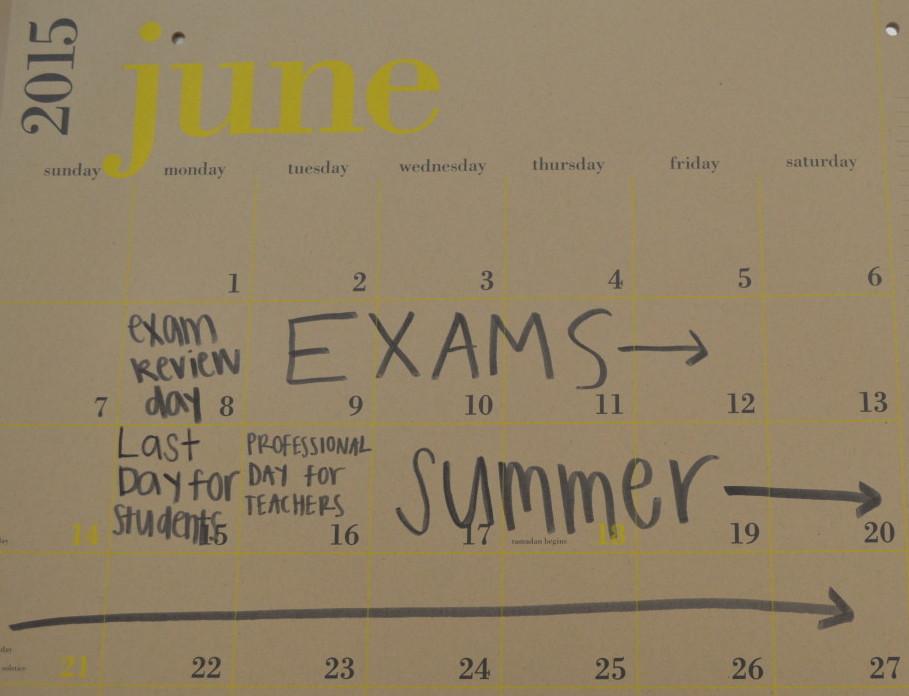 2015
june
sunday monday tuesday wednesday thursday friday saturday
1 2 3 4 5 6
exam
Review
day
EXAMS
7 8 9 10 11 12 13
Last
Day for
students
PROFESSIONAL
DAY for
TEACHERS
Summer
ramadan begins
14 15 16 17 18 19 20
solstice
21 22 23 24 25 26 27